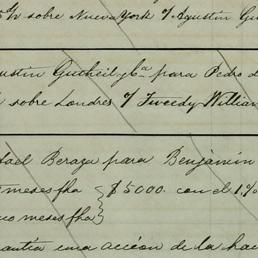 s/v sobre Nueva York o/ Agustin Gu
ustin Gutheil y Ca para Pedro d
sobre Londres o/ Tweedy William
fael Beraza para Benjamin
meses fha
$5000. con el 1%
co meses fha
antia una accion de la hac